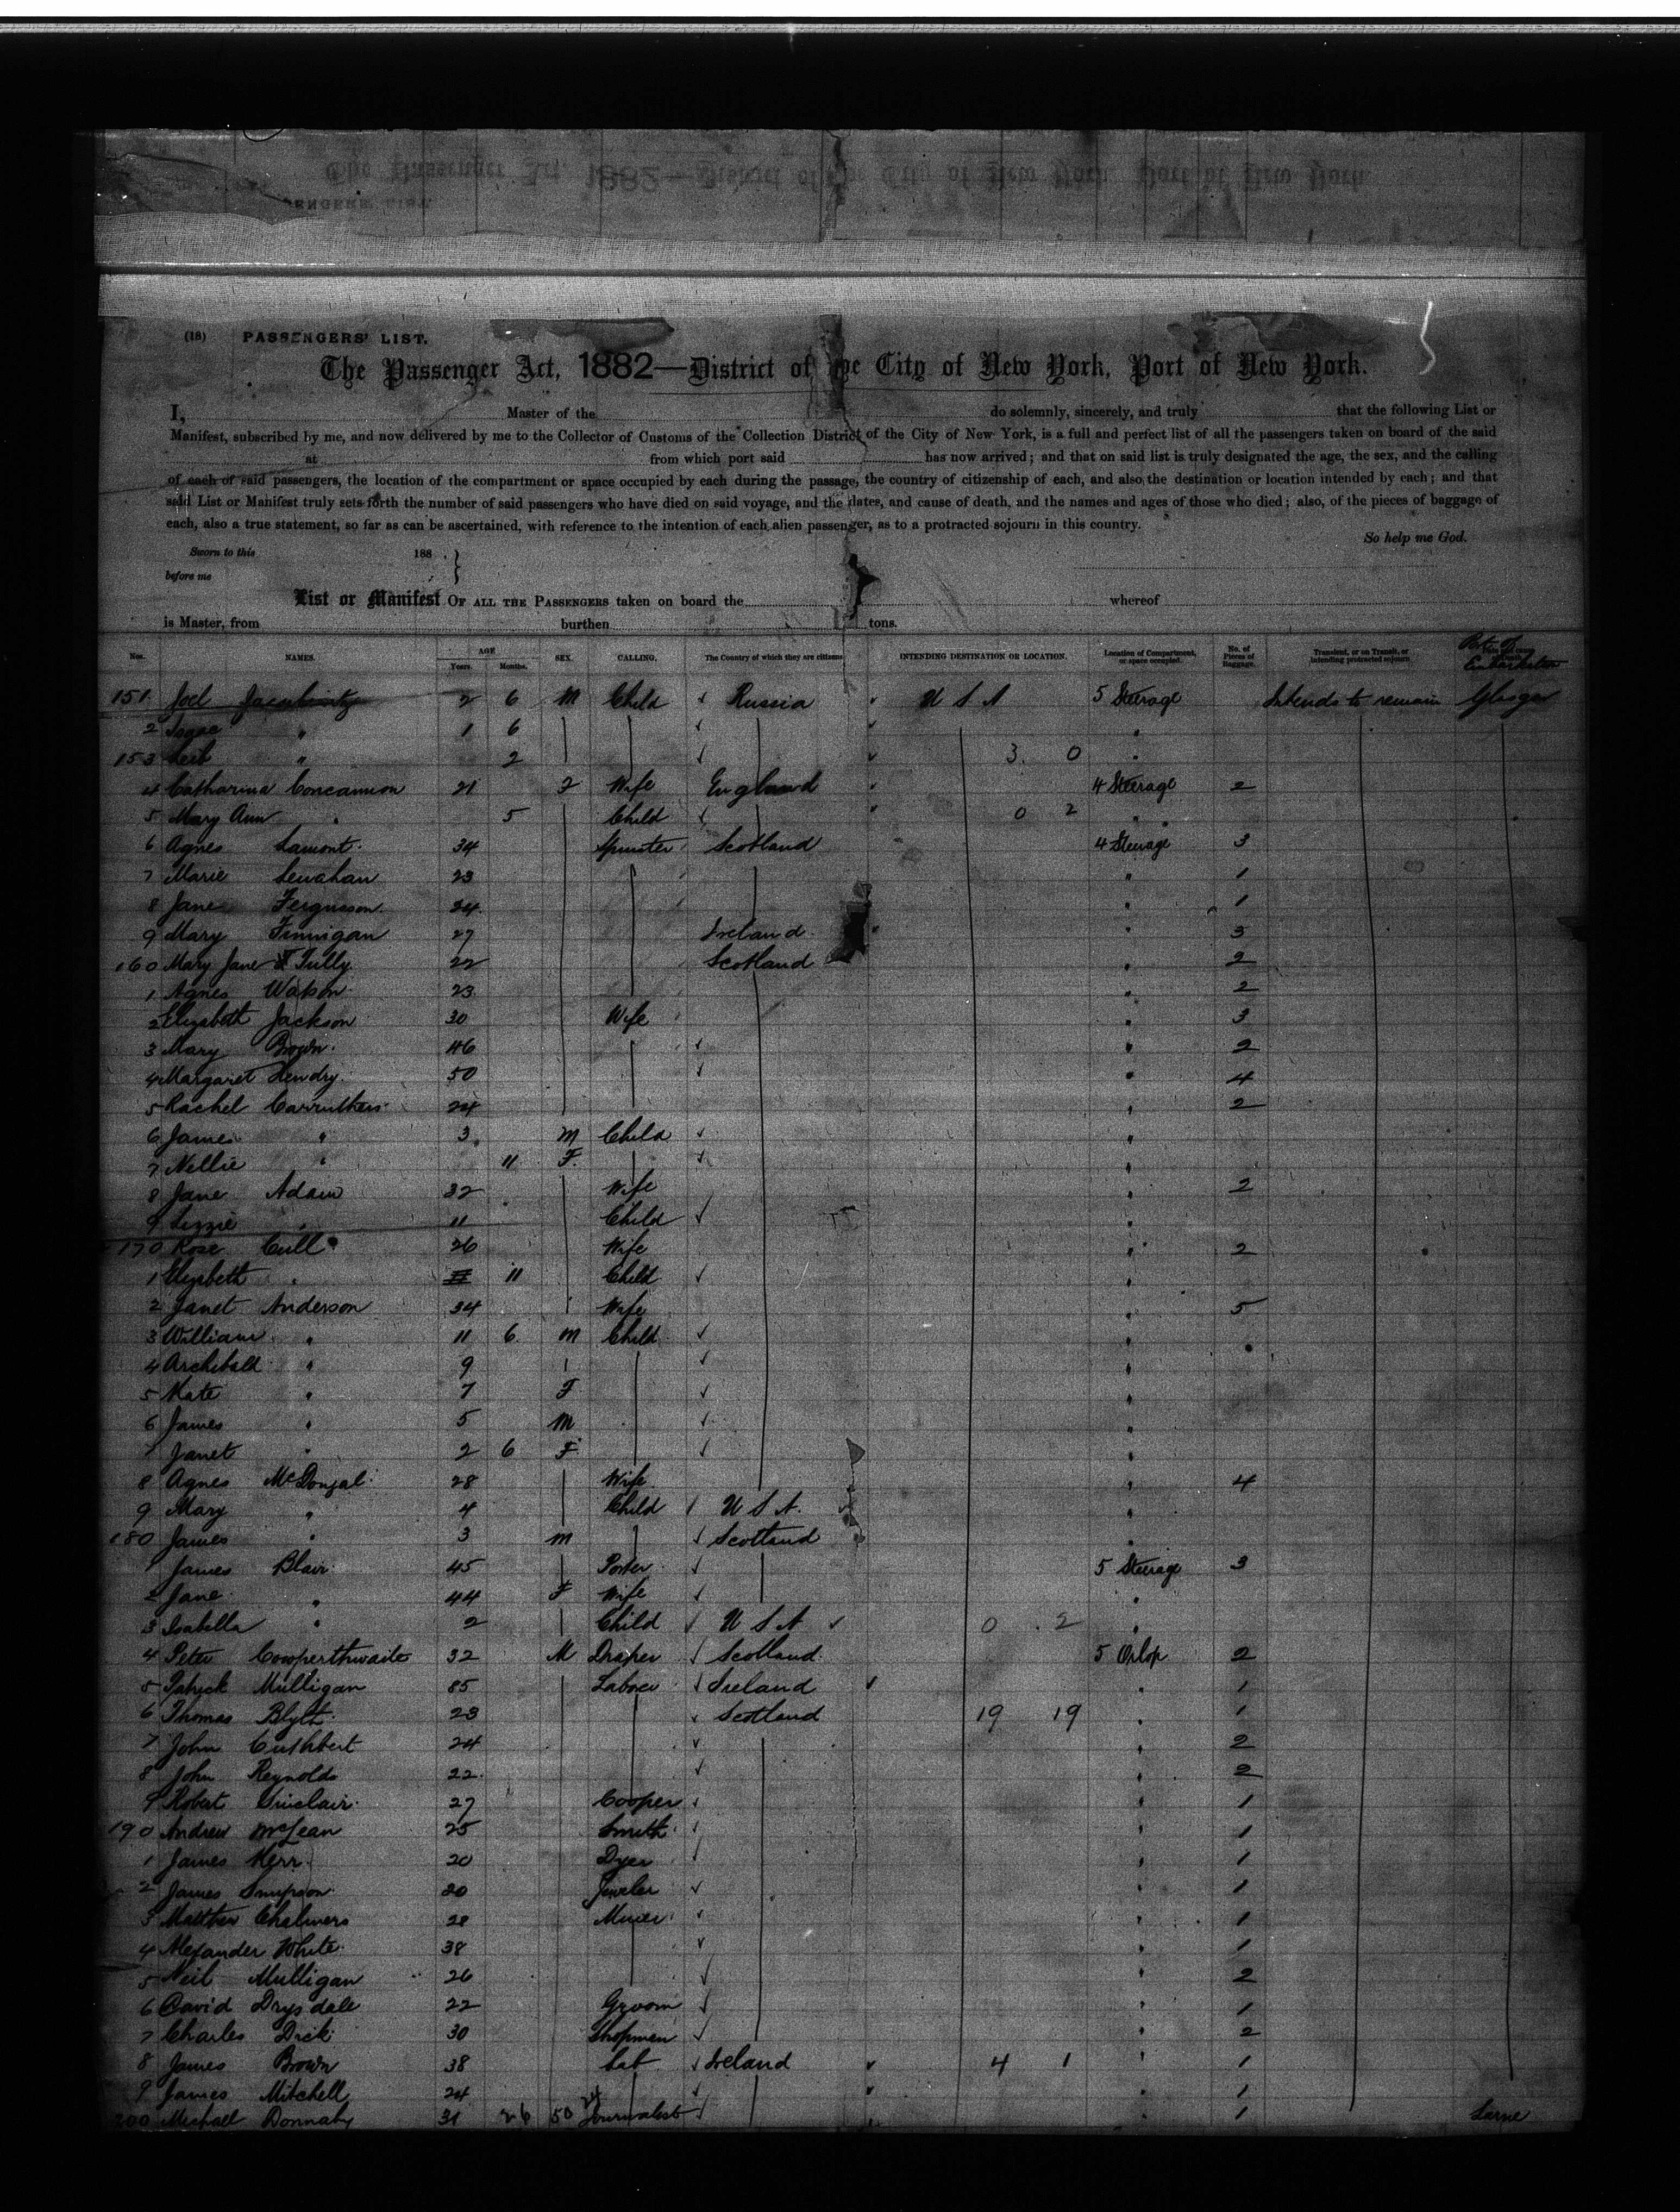 (18) PASSENGERS' LIST.
The Passenger Act, 1882—District of the City of New York, Port of New York.
I, Master of the do solemnly, sincerely, and truly that the following List or
Manifest, subscribed by me, and now delivered by me to the Collector of Customs of the Collection District of the City of New York, is a full and perfect list of all the passengers taken on board of the said
at from which port said has now arrived; and that on said list is truly designated the age, the sex, and the calling
of each of said passengers, the location of the compartment or space occupied by each during the passage, the country of citizenship of each, and also the destination or location intended by each; and that
said List or Manifest truly sets forth the number of said passengers who have died on said voyage, and the dates, and cause of death, and the names and ages of those who died; also, of the pieces of baggage of
each, also a true statement, so far as can be ascertained, with reference to the intention of each alien passenger, as to a protracted sojourn in this country.
So help me God.
Sworn to this 188 .
before me
List or Manifest OF ALL THE PASSENGERS taken on board the whereof
is Master, from burthen tons.
Nos. NAMES. AGE Years. Months. SEX. CALLING. The Country of which they are citizens INTENDING DESTINATION OR LOCATION. Location of Compartment, or space occupied. No. of Pieces of Baggage. Transient, or on Transit, or intending protracted sojourn Port of Embarkation
151 Joel 2 6 M Child Russia U S A 5 Steerage Intends to remain Glasgow
2 Isaac " 1 6 "
153 Leib " 2 3 0 "
4 Catharina Concannon 21 F Wife England 4 Steerage 2
5 Mary Ann " 5 Child 0 2 "
6 Agnes Lamont 34 Spinster Scotland 4 Steerage 3
7 Marie Lenahan 23 " 1
8 Jane Fergusson 24 " 1
9 Mary Finnigan 27 Ireland " 3
160 Mary Jane Tully 22 Scotland " 2
1 Agnes Watson 23 " 2
2 Elizabeth Jackson 30 Wife " 3
3 Mary Brown 46 " 2
4 Margaret Hendry 50 " 4
5 Rachel Carruthers 24 " 2
6 James " 3 M Child "
7 Nellie " 11 F "
8 Jane Adam 32 Wife " 2
9 Lizzie " 11 Child "
170 Rose Cull 26 Wife " 2
1 Elizabeth " 11 Child "
2 Janet Anderson 34 Wife " 5
3 William " 11 6 M Child "
4 Archibald " 9 "
5 Kate " 7 F "
6 James " 5 M "
7 Janet " 2 6 F "
8 Agnes McDougal 28 Wife " 4
9 Mary " 4 Child U S A "
180 James " 3 M Scotland "
1 James Blair 45 Porter 5 Steerage 3
2 Jane " 44 F Wife "
3 Isabella " 2 Child U S A 0 2 "
4 Peter Cowperthwaite 32 M Draper Scotland 5 Orlop 2
5 Patrick Mulligan 35 Laborer Ireland " 1
6 Thomas Blyth 23 Scotland 19 19 " 1
7 John Cuthbert 24 " 2
8 John Reynolds 22 " 2
9 Robert Sinclair 27 Cooper " 1
190 Andrew McLean 25 Smith " 1
1 James Kerr 20 Dyer " 1
2 James Simpson 20 Jeweler " 1
3 Matthew Chalmers 28 Miner " 1
4 Alexander White 38 " 1
5 Neil Mulligan 26 " 2
6 David Drysdale 22 Groom " 1
7 Charles Dick 30 Shopman " 2
8 James Brown 38 Lab Ireland 4 1 " 1
9 James Mitchell 24 " 1
200 Michael Donnaby 31 26 50 24 Journalist " 1 Larne